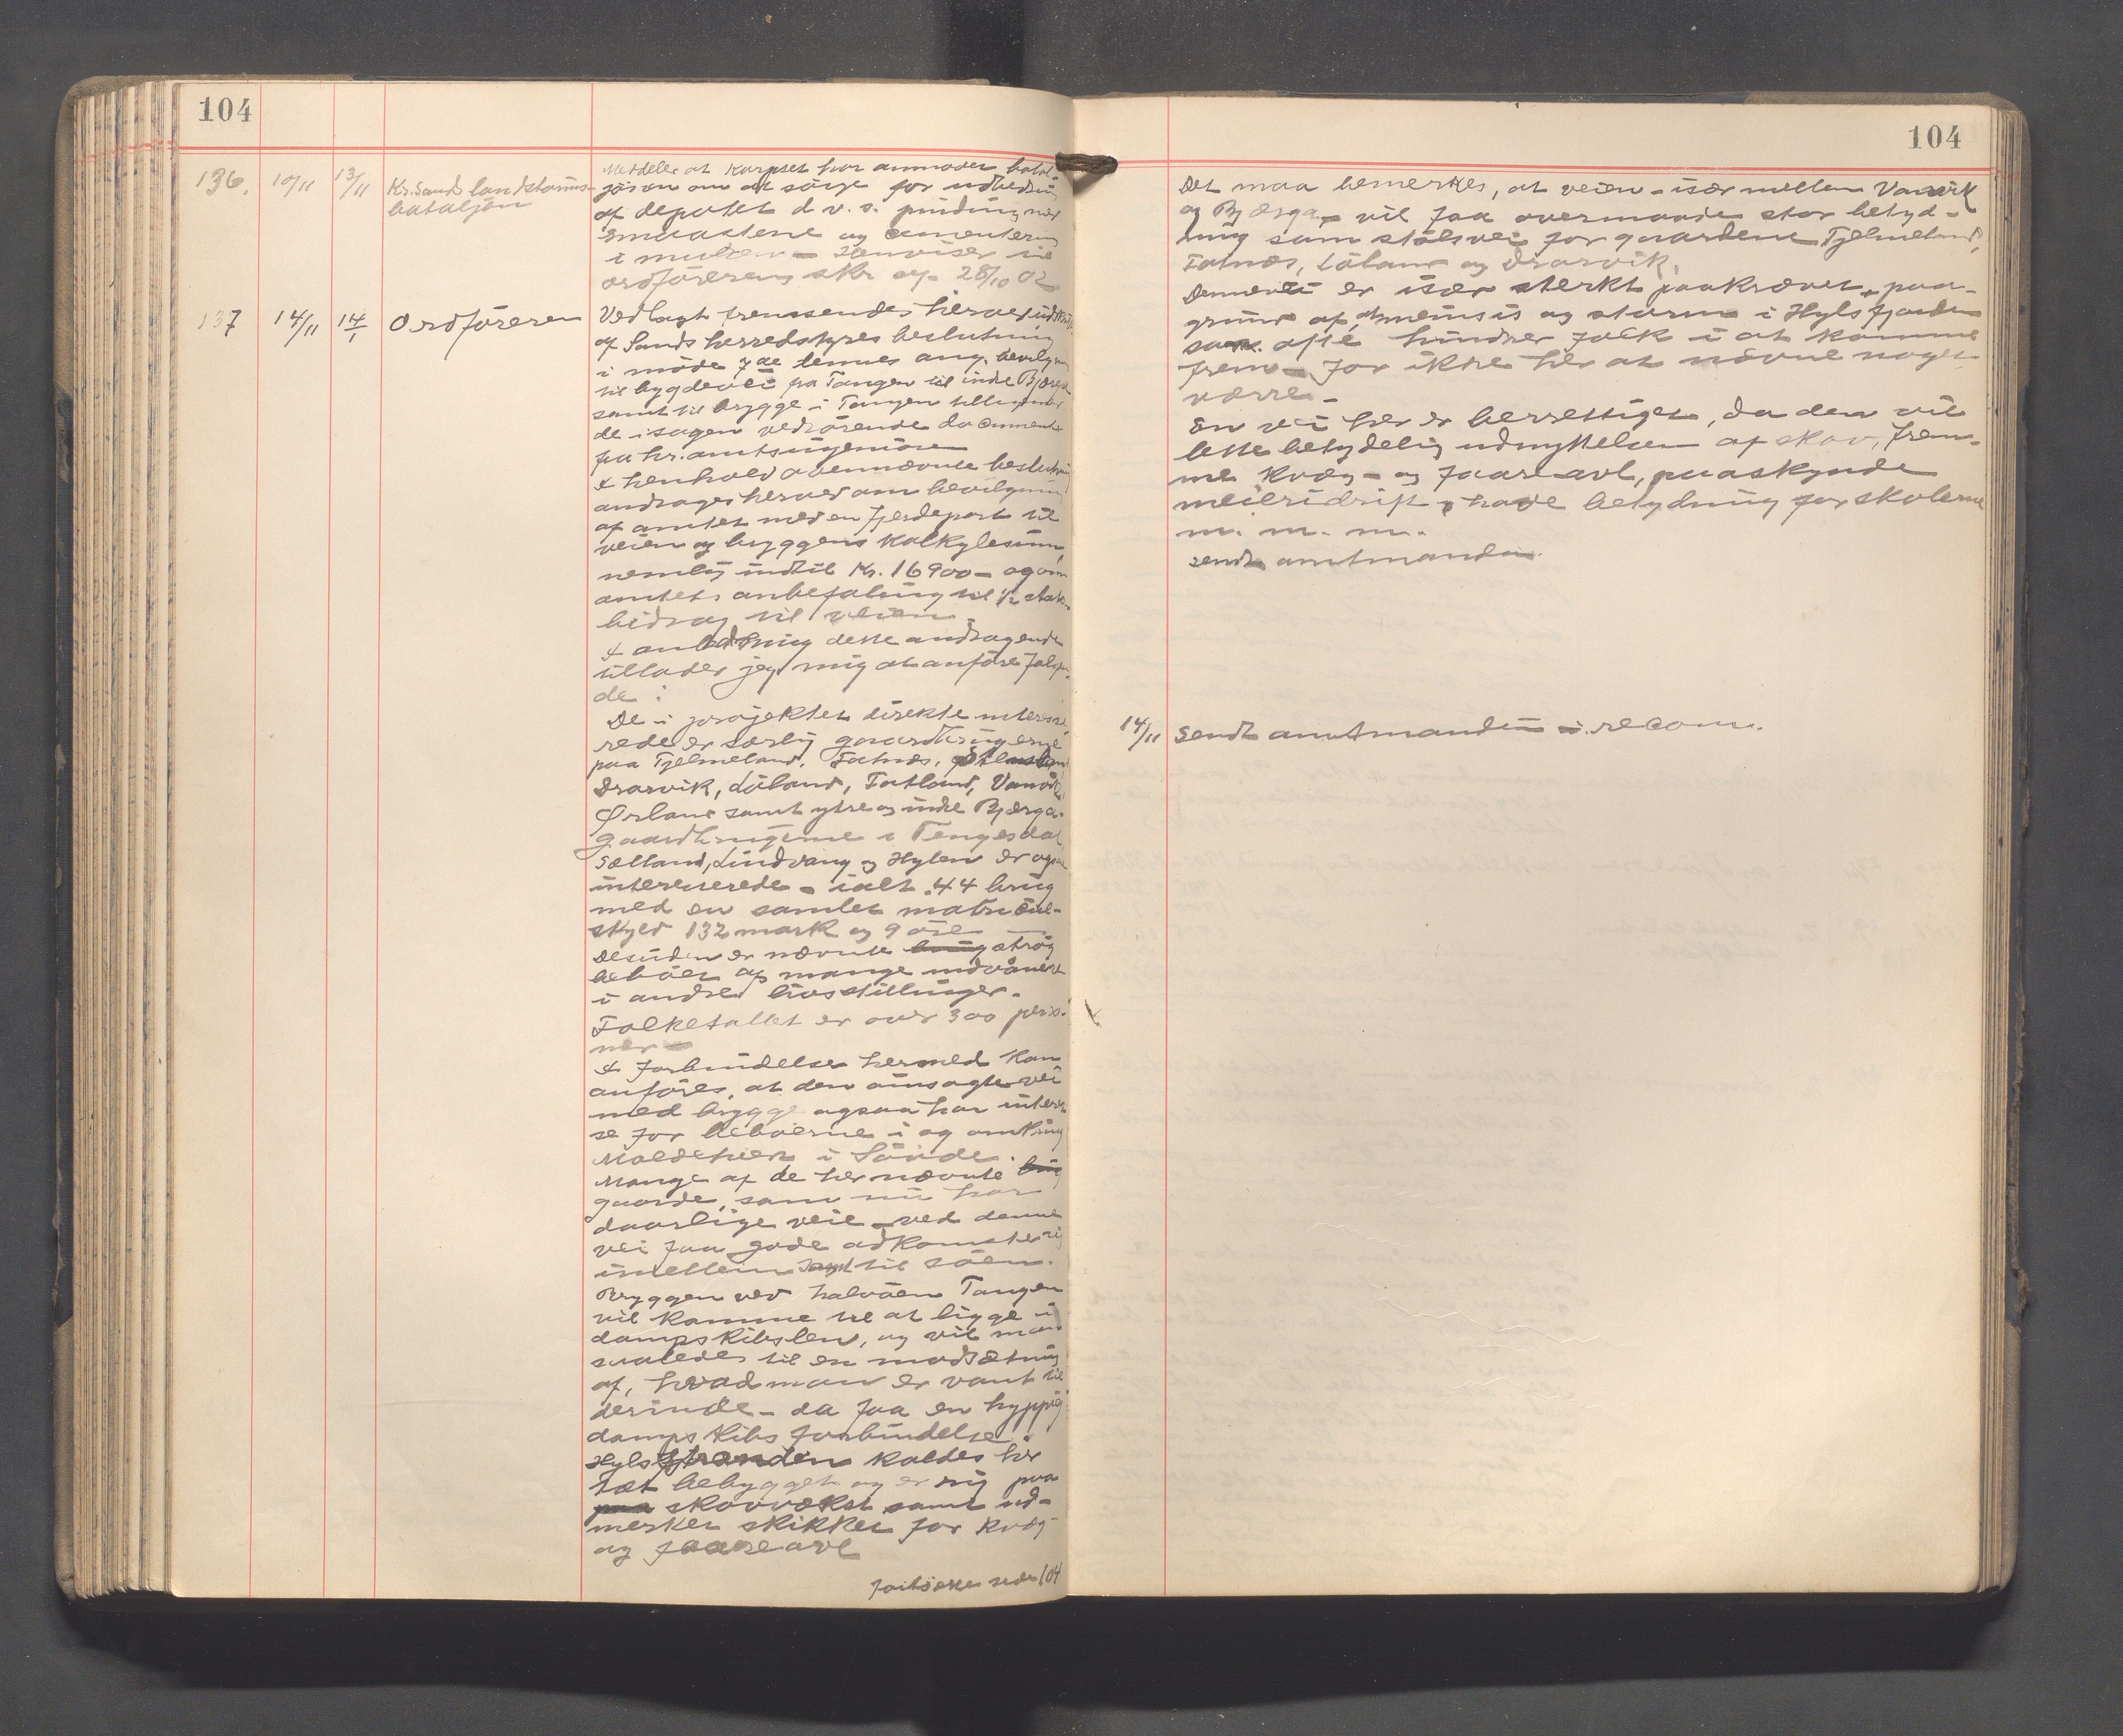 104
136. 10/11 13/11 Kr.sands landstorms-
bataljon
Meddeler at korpset har anmodet batal-
jonen om at sörge for udbedring
af depotet d.v.s. pudsing med
smaastene og cementering
i muren - Henviser til
ordförerens skr af 28/10 02
137 14/11 14/1 Ordföreren
Vedlagt fremsendes herved udskrift
af Sands herredstyres beslutning
i möde 7de dennes ang. bevilgning
til bygdevei fra Tangen til indre Bjærga
samt til brygge i Tangen tilligemed
de i sagen vedrörende documenter
fra hr. amtsingeniören
I henhold ovennævnte beslutning
andrages herved om bevilgning
af amtet med en fjerdepart til
veien og bryggens kalkylesum,
nemlig indtil Kr. 16900 - og om
amtets anbefaling til 1/2 stats-
bidrag til veien.
I anledning dette andragende
tillader jeg mig at anföre fölgen-
de:
De i projektet direkte interesse-
rede er særlig gaardbrugerne
paa Tjelmeland, Fatnæs,
Drarvik, Löland, Fatland, Vanvik
Ørland samt ytre og indre Bjærga.
Gaardbrugerne i Tengesdal,
Sælland, Lindvang og Hylen er ogsaa
interesserede - ialt 44 brug
med en samlet matricul-
skyld 132 mark og 9 öre
Desuden er nævnte brug strög
beboet af mange indvånere
i andre livsstillinger.
Folketallet er over 300 perso-
ner -
I forbindelse hermed kan
anföres, at den omsagte vei
med brygge ogsaa har interes-
se for beboerne i og omkring
i Sövde.
Mange af de her nævnte brug
gaarde, som nu har
daarlige veie - ved denne
vei faa gode adkomster sig
imellem samt til söen.
Bryggen ved halvöen Tangen
vil komme til at ligge i
dampskibsled, og vil man
saaledes til en modsætning
af, hvad man er vant til
derinde - da faa en hyppig
dampskibsforbindelse
Hylsstranden kaldes her
tæt bebygget og er rig paa
paa skovvækst samt ud-
merket skikket for kvæg-
og faareavl
side 104
104
Det maa bemerkes, at veien - især mellem Vanvik
og Bjærga - vil faa overmaade stor betyd-
ning som stölsvei for gaardene Tjelmeland,
Fatnæs, Löland og Drarvik.
Denne vei er især sterkt paakrævet, paa-
grund af drivis og storm i Hylsfjorden
som ofte hindrer folk i at komme
frem - for ikke her at nævne noget
værre -
En vei her er berettiget, da den vil
lette betydelig udnyttelsen af skov, frem-
me kvæg- og faareavl, paaskynde
meieridrift, have betydning for skolerne
m. m. m.
Sendt amtmanden.
14/11 Sendt amtmanden i recom.